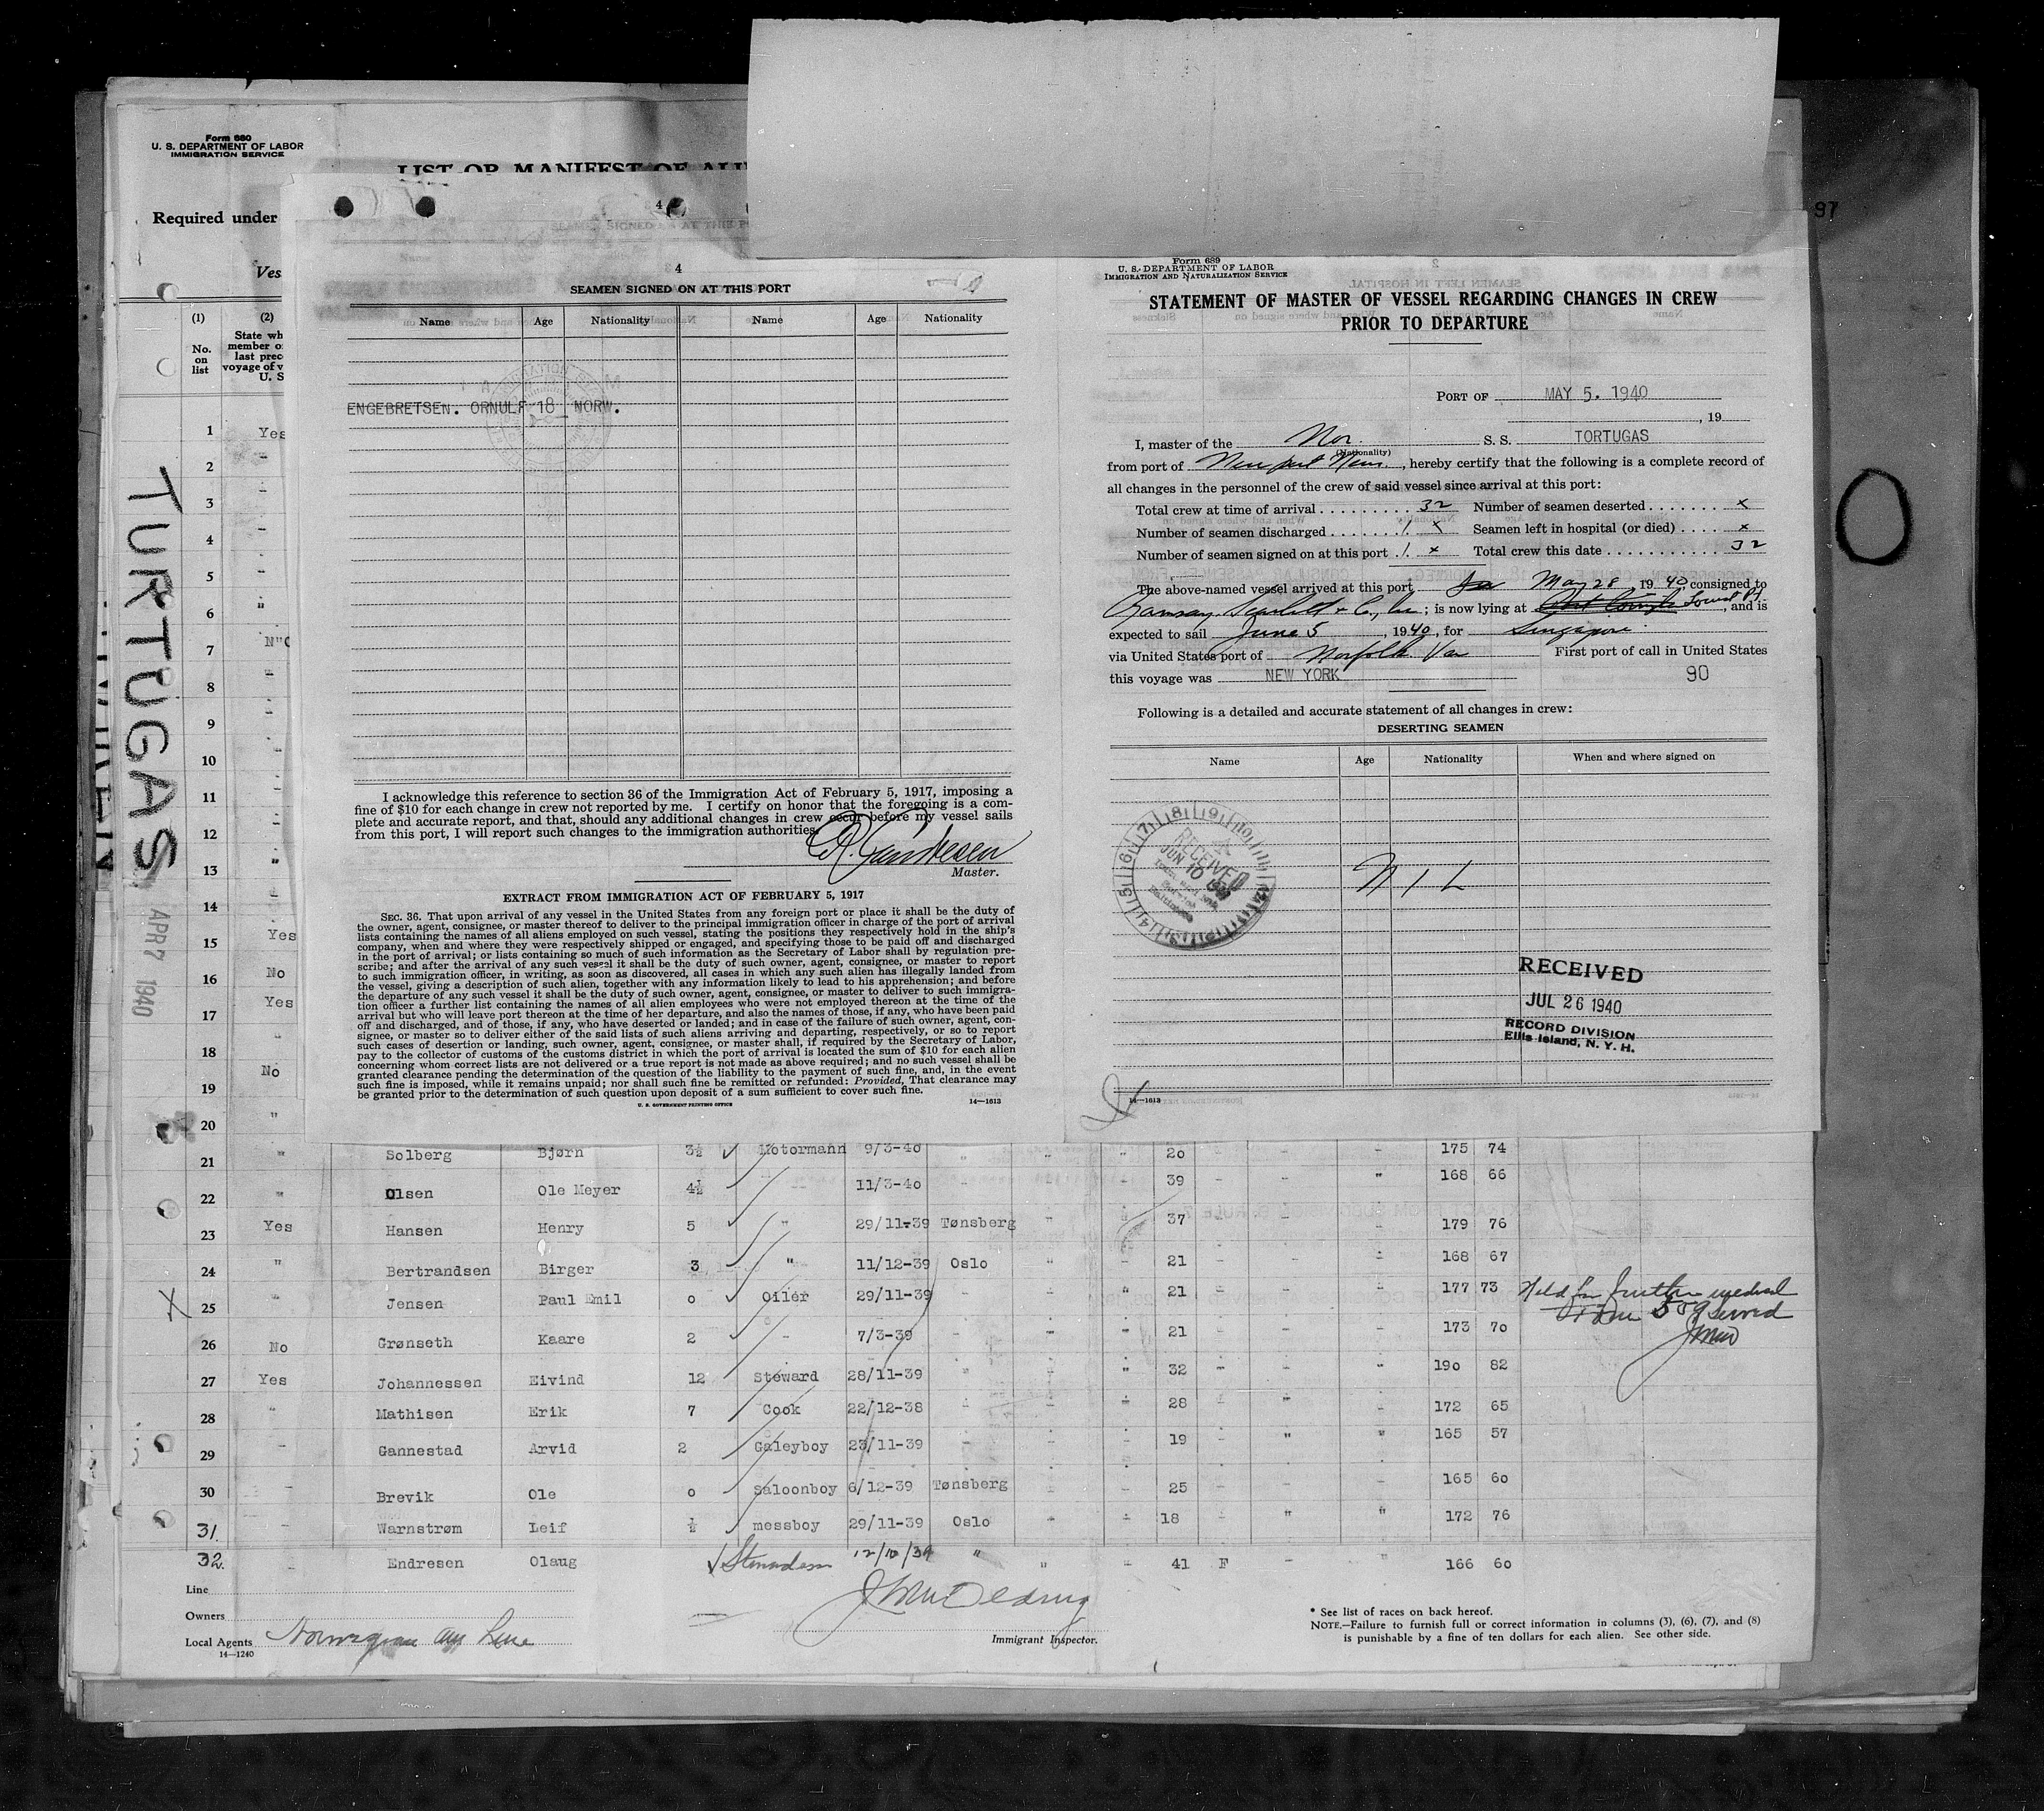 Form 680
U. S. DEPARTMENT OF LABOR
IMMIGRATION SERVICE
LIST OR MANIFEST OF ALI
Required under
Ves
(1) (2)
No. on list
State wh
member o
last prec
voyage of v
U. S
97
TURTUGAS
APR 7 1940
1 Yes
2 "
3 "
4 "
5 "
6 "
7 N"
8 "
9 "
10 "
11 "
12 "
13 "
14
15 Yes
16 No
17 Yes
18 "
19 No
20 "
4
4
SEAMEN SIGNED ON AT THIS PORT
Name Age Nationality Name Age Nationality
ENGEBRETSEN. ORNULF 18 NORW.
I acknowledge this reference to section 36 of the Immigration Act of February 5, 1917, imposing a
fine of $10 for each change in crew not reported by me. I certify on honor that the foregoing is a com-
plete and accurate report, and that, should any additional changes in crew occur before my vessel sails
from this port, I will report such changes to the immigration authorities.
Master.
EXTRACT FROM IMMIGRATION ACT OF FEBRUARY 5, 1917
SEC. 36. That upon arrival of any vessel in the United States from any foreign port or place it shall be the duty of
the owner, agent, consignee, or master thereof to deliver to the principal immigration officer in charge of the port of arrival
lists containing the names of all aliens employed on such vessel, stating the positions they respectively hold in the ship's
company, when and where they were respectively shipped or engaged, and specifying those to be paid off and discharged
in the port of arrival; or lists containing so much of such information as the Secretary of Labor shall by regulation pre-
scribe; and after the arrival of any such vessel it shall be the duty of such owner, agent, consignee, or master to report
to such immigration officer, in writing, as soon as discovered, all cases in which any such alien has illegally landed from
the vessel, giving a description of such alien, together with any information likely to lead to his apprehension; and before
the departure of any such vessel it shall be the duty of such owner, agent, consignee, or master to deliver to such immigra-
tion officer a further list containing the names of all alien employees who were not employed thereon at the time of the
arrival but who will leave port thereon at the time of her departure, and also the names of those, if any, who have been paid
off and discharged, and of those, if any, who have deserted or landed; and in case of the failure of such owner, agent, con-
signee, or master so to deliver either of the said lists of such aliens arriving and departing, respectively, or so to report
such cases of desertion or landing, such owner, agent, consignee, or master shall, if required by the Secretary of Labor,
pay to the collector of customs of the customs district in which the port of arrival is located the sum of $10 for each alien
concerning whom correct lists are not delivered or a true report is not made as above required; and no such vessel shall be
granted clearance pending the determination of the question of the liability to the payment of such fine, and, in the event
such fine is imposed, while it remains unpaid; nor shall such fine be remitted or refunded: Provided, That clearance may
be granted prior to the determination of such question upon deposit of a sum sufficient to cover such fine.
U. S. GOVERNMENT PRINTING OFFICE 14—1613
Form 689
U. S. DEPARTMENT OF LABOR
IMMIGRATION AND NATURALIZATION SERVICE
STATEMENT OF MASTER OF VESSEL REGARDING CHANGES IN CREW
PRIOR TO DEPARTURE
PORT OF MAY 5. 1940
, 19
I, master of the Nor. S. S. TORTUGAS
(Nationality)
from port of Newport News, hereby certify that the following is a complete record of
all changes in the personnel of the crew of said vessel since arrival at this port:
Total crew at time of arrival 32 Number of seamen deserted x
Number of seamen discharged 1 x Seamen left in hospital (or died) x
Number of seamen signed on at this port 1 x Total crew this date 32
The above-named vessel arrived at this port May 28, 1940, consigned to
Ramsay, Scarlett & Co, Inc; is now lying at Locust Pt, and is
expected to sail June 5, 1940, for Singapore.
via United States port of Norfolk Va First port of call in United States
this voyage was NEW YORK 90
Following is a detailed and accurate statement of all changes in crew:
DESERTING SEAMEN
Name Age Nationality When and where signed on
RECEIVED
JUN 10
NIL
RECEIVED
JUL 26 1940
RECORD DIVISION
Ellis Island, N. Y. H.
14—1613
21 " Solberg Bjørn 3½ Motormann 9/3-40 " " " 20 - - - 175 74
22 " Olsen Ole Meyer 4½ - 11/3-40 - - - 39 - - " 168 66
23 Yes Hansen Henry 5 " 29/11-39 Tønsberg " " 37 - - - 179 76
24 " Bertrandsen Birger 3 " 11/12-39 Oslo " - 21 - - - 168 67
X 25 - Jensen Paul Emil 0 Oiler 29/11-39 - - " 21 - - " 177 73 Held for further medical
Form 509 served
26 No Grønseth Kaare 2 - 7/3-39 - " " 21 - - - 173 70
27 Yes Johannessen Eivind 12 Steward 28/11-39 - - " 32 - - " 190 82
28 " Mathisen Erik 7 Cook 22/12-38 - - - 28 - " - 172 65
29 - Gannestad Arvid 2 Galeyboy 23/11-39 - - - 19 - " " 165 57
30 - Brevik Ole 0 Saloonboy 6/12-39 Tønsberg - - 25 - - - 165 60
31. - Warnstrøm Leif ½ messboy 29/11-39 Oslo " - 18 - " " 172 76
32. - Endresen Olaug 12/10/39 " " - 41 F - " 166 60
Line
Owners
Local Agents Norwegian Am Line
14—1240
Immigrant Inspector.
* See list of races on back hereof.
NOTE.—Failure to furnish full or correct information in columns (3), (6), (7), and (8)
is punishable by a fine of ten dollars for each alien. See other side.